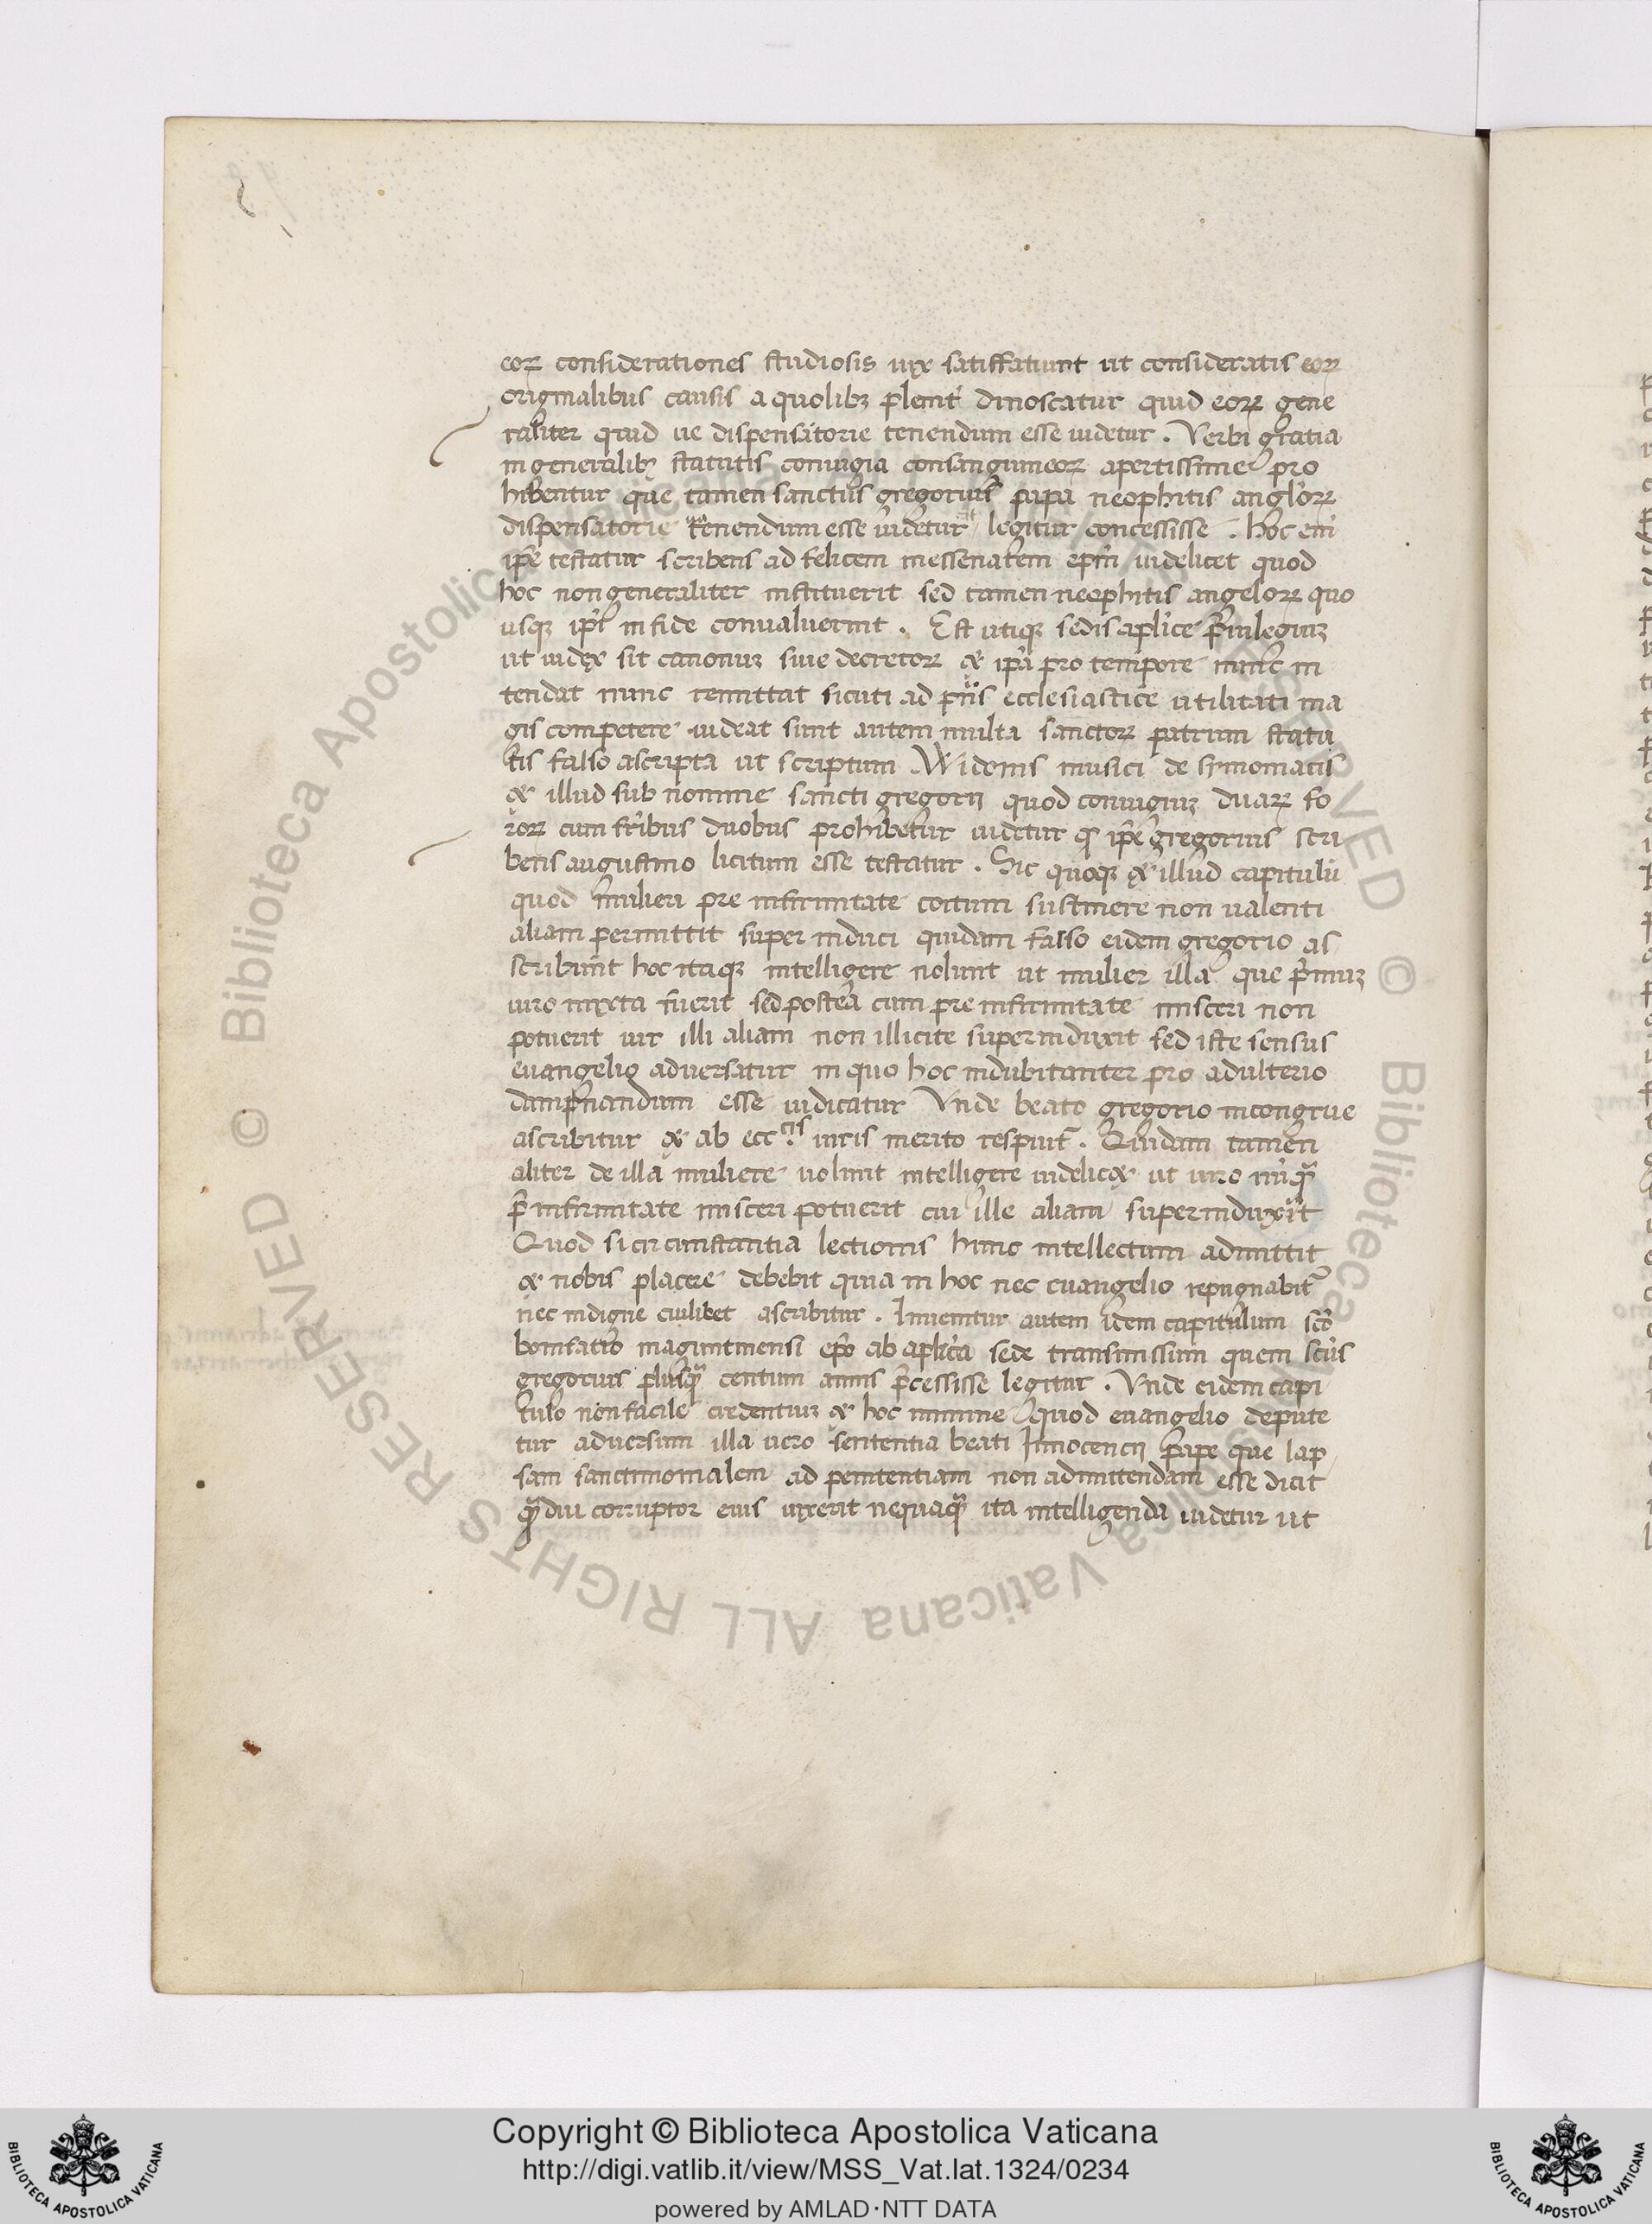 eoꝝ considerationes studiosis uix satisfatiunt ut consideratis eoꝝ
originalibus causis a quolibꝫ plenit̉ dinoscatur quid eoꝝ gene
raliter quid ue dispensatorie tenendum esse uidetur . Verbi gratia
in generalibꝫ statutis coniugia consanguineoꝝ apertissime pro
hibentur que tamen sanctus gregorius papa neophitis angloꝝ
dispensatorie tenendum esse uidetur legitur concessisse . hoc eni̅
ip̅e testatur scribens ad felicem messenatem ep̅m uidelicet quod
hoc non generaliter instituerit sed tamen neophitis angeloꝝ quo
usqꝫ ip̅i in fide conualuerint . Est utiqꝫ sedis aplice p̅uilegiuꝫ
ut iudex sit canonuꝫ siue decretoꝝ & ip̅a pro tempore nunc in
tendat nunc remittat sicuti ad p̅n̅s ecclesiastice utilitati ma
gis competere uideat sunt autem multa sanctoꝝ patrum statu
tis falso ascripta ut scriptum . Widonis musici de symoniacis
& illud sub nomine sancti gregorij quod coniugiuꝫ duaꝝ so
roꝝ cum fr̅ibus duobus prohibetur uidetur ꝙ ip̅e gregorius scri
bens augustino licitum esse testatur . Sic quoqꝫ & illud capitulu̅
quod mulieri pre infirmitate coitum sustinere non ualenti
aliam permittit super induci quidam falso eidem gregorio as
scribunt hoc itaqꝫ intelligere nolunt ut mulier illa que p̅imuꝫ
uiro mixta fuerit sed postea cum pre infirmitate misceri non
potuerit uir illi aliam non illicite superinduxit sed iste sensus
euangelio aduersatur in quo hoc indubitanter pro adulterio
dampnandum esse iudicatur Vnde beato gregorio incongrue
ascribitur & ab ecc.cis uiris merito respuit̉ . Quidam tamen
aliter de illa muliere uolunt intelligere uidelic& ut uiro nu̅qꝫ
p̅ infirmitate misceri potuerit cui ille aliam superinduxit
Quod si circumstantia lectionis hunc intellectum admittit
& nobis placere debebit quia in hoc nec euangelio repugnabit̉
nec indigne cuilibet ascribitur . Inuenitur autem idem capitulum sc̅o
bonifatio maguntinensi ep̅o ab aplica sede transmissum quem sc̅us
gregorius plusqꝫ centum annis p̅cessisse legitur . Vnde eidem capi
tulo non facile credentiuꝫ & hoc minime quod euangelio depute
tur aduersum illa uero sententia beati Innocencij pape que lap
sam sanctimonialem ad penitentiam non admittendam esse dicit
qꝫdiu corruptor eius uixerit nequaqꝫ ita intelligenda uidetur ut
Copyright © Biblioteca Apostolica Vaticana
http://digi.vatlib.it/view/MSS_Vat.lat.1324/0234
powered by AMLAD·NTT DATA
BIBLIOTECA APOSTOLICA VATICANA
BIBLIOTECA APOSTOLICA VATICANA
© Biblioteca Apostolica Vaticana ALL RIGHTS RESERVED
© Biblioteca Apostolica Vaticana ALL RIGHTS RESERVED